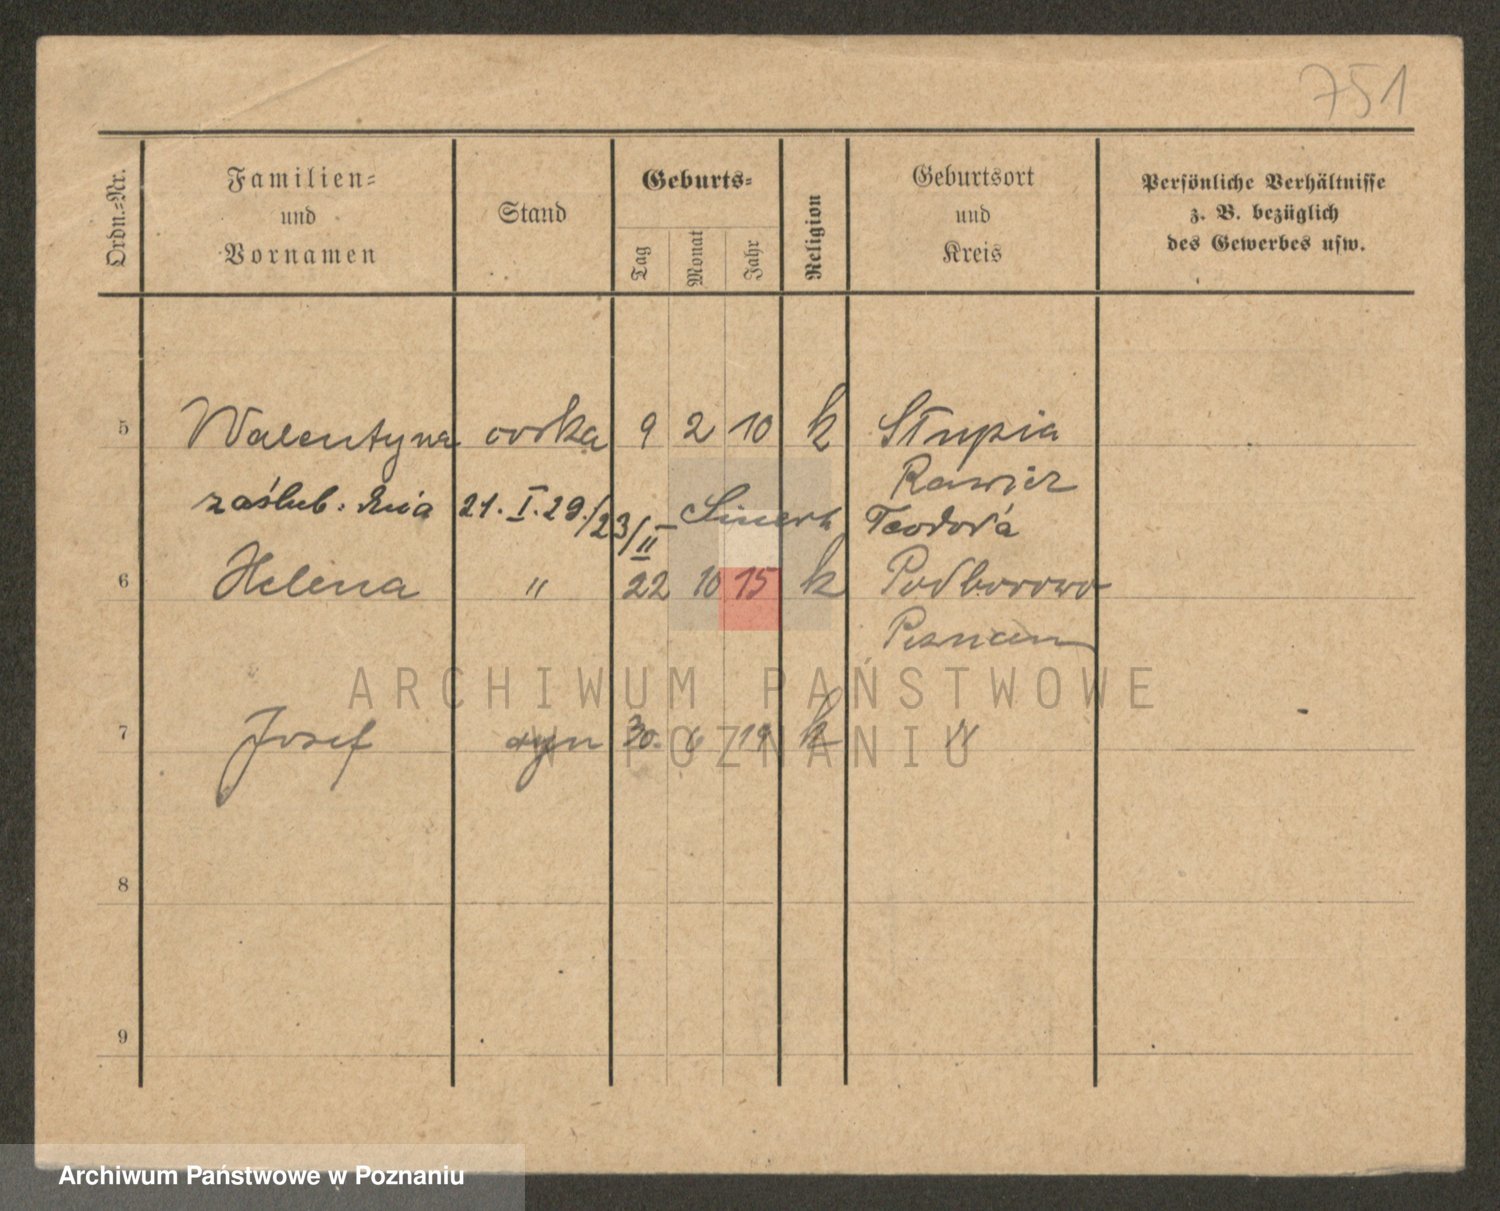 751
Ordn.-Nr.
Familien-
und
Vornamen
Stand
Geburts-
Tag
Monat
Jahr
Religion
Geburtsort
und
Kreis
Persönliche Verhältnisse
z. B. bezüglich
des Gewerbes usw.
5 Walentyna córka 9 2 10 k Słupia
Rawicz
zaślub. dnia 21. I. 29./23/II Teodora
6 Helena " 22 10 15 k Podborowo
Poznań
7 Josef syn 30. 6 19 k "
8
9
ARCHIWUM PAŃSTWOWE
W POZNANIU
Archiwum Państwowe w Poznaniu